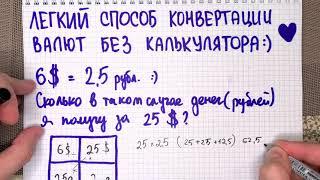 ЛЕГКИЙ СПОСОБ КОНВЕРТАЦИИ
ВАЛЮТ БЕЗ КАЛЬКУЛЯТОРА:)
6$ = 2,5 рубл. :)
Сколько в таком случае денег (рублей)
я получу за 25 $?
6$ 25$
25×2,5 (25+25+12,5) 62,5